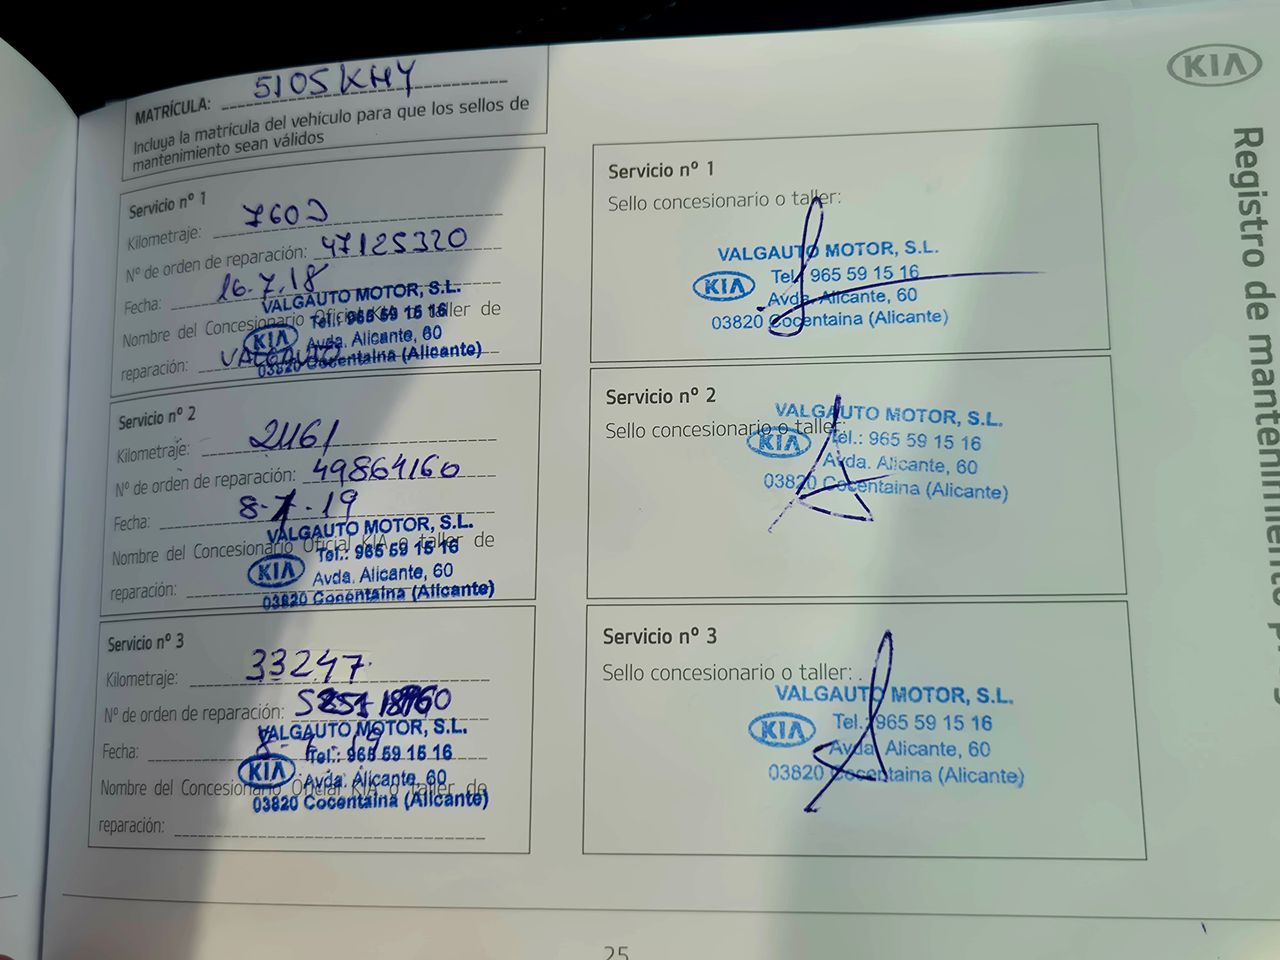 KIA
Registro de mantenimiento
MATRÍCULA: 5105KHY
Incluya la matrícula del vehículo para que los sellos de
mantenimiento sean válidos
Servicio nº 1
Kilometraje:
Nº de orden de reparación: 47125320
Fecha: 16.7.18
Nombre del Concesionario Oficial KIA o taller de
reparación: VALGAUTO
VALGAUTO MOTOR, S.L.
Tel.: 965 59 15 16
KIA Avda. Alicante, 60
03820 Cocentaina (Alicante)
Servicio nº 1
Sello concesionario o taller:
VALGAUTO MOTOR, S.L.
Tel.: 965 59 15 16
KIA Avda. Alicante, 60
03820 Cocentaina (Alicante)
Servicio nº 2
Kilometraje: 21161
Nº de orden de reparación: 49864160
Fecha:
Nombre del Concesionario Oficial KIA o taller de
reparación:
VALGAUTO MOTOR, S.L.
Tel.: 965 59 15 16
KIA Avda. Alicante, 60
03820 Cocentaina (Alicante)
Servicio nº 2
Sello concesionario o taller:
VALGAUTO MOTOR, S.L.
KIA Tel.: 965 59 15 16
Avda. Alicante, 60
03820 Cocentaina (Alicante)
Servicio nº 3
Kilometraje: 33247
Nº de orden de reparación:
Fecha:
Nombre del Concesionario Oficial KIA o taller de
reparación:
VALGAUTO MOTOR, S.L.
Tel.: 965 59 15 16
KIA Avda. Alicante, 60
03820 Cocentaina (Alicante)
Servicio nº 3
Sello concesionario o taller:
VALGAUTO MOTOR, S.L.
KIA Tel.: 965 59 15 16
Avda. Alicante, 60
03820 Cocentaina (Alicante)
25